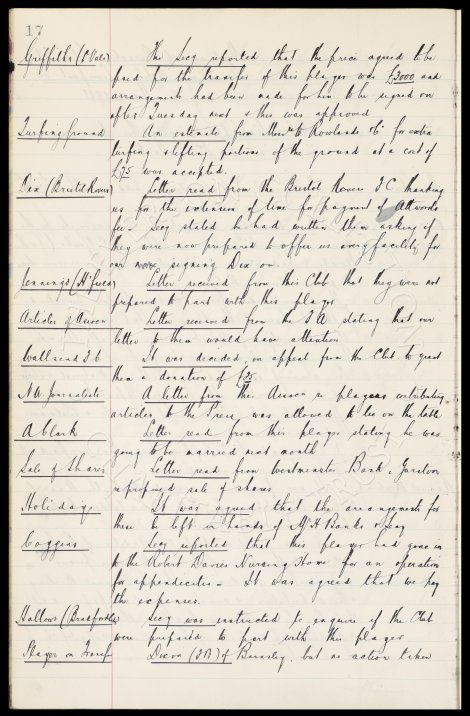 17
Griffiths (P Vale) The Secy reported that the price agreed to be
paid for the transfer of this player was £2000 and
arrangements had been made for him to be signed on
after Tuesday next & this was approved
Turfing Ground An estimate from Mess Rowlands & Co for extra
turfing & lifting portions of the ground at a cost of
£75 was accepted.
Dix (Bristol Rovers) Letter read from the Bristol Rovers F C thanking
us for the extension of time for payment of Attwoods
fee. Secy stated he had written them asking if
they were now prepared to offer us every facility for
our signing Dix on.
Jennings (H'field) Letter received from this Club that they were not
prepared to part with this player
Articles of Assocn Letter received from the F A stating that our
letter to them would have attention
It was decided, on appeal from the Club to grant
them a donation of £25
N.U. Journalists A letter from this Assocn re players contributing
articles to the Press was allowed to lie on the table
A Clark Letter read from this player stating he was
going to be married next month
Sale of Shares Letter read from Westminster Bank,
re proposed sale of shares
Holiday It was agreed that the arrangements for
these be left in hands of Mr H Banks & Secy
Coggins Secy reported that this player had gone in
to the Robert Davies Nursing Home for an operation
for appendicitis - It was agreed that we pay
the expenses.
Hallows (Bradford City) Secy was instructed to enquire if the Club
were prepared to part with this player
Player on Transf Dixon (F B) of Barnsley, but no action taken